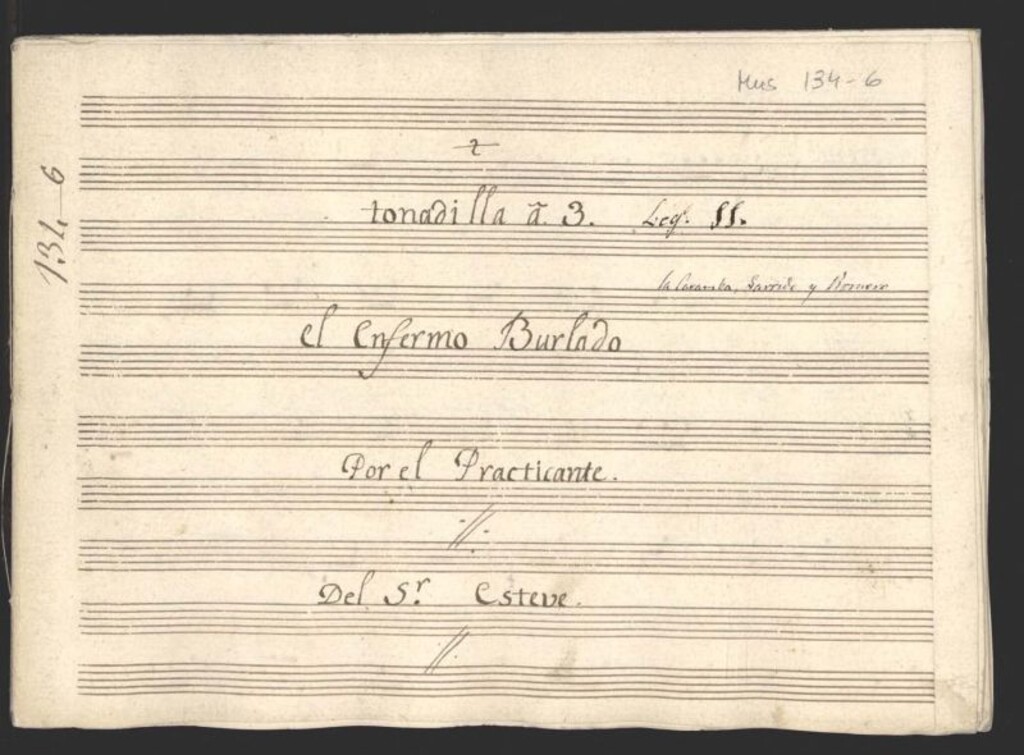 Mus 134-6
134-6
2
tonadilla ã. 3. Leg.º 11.
la Caramba, Garrido y Romero
El Enfermo Burlado
Por el Practicante.
Del S.r Esteve.